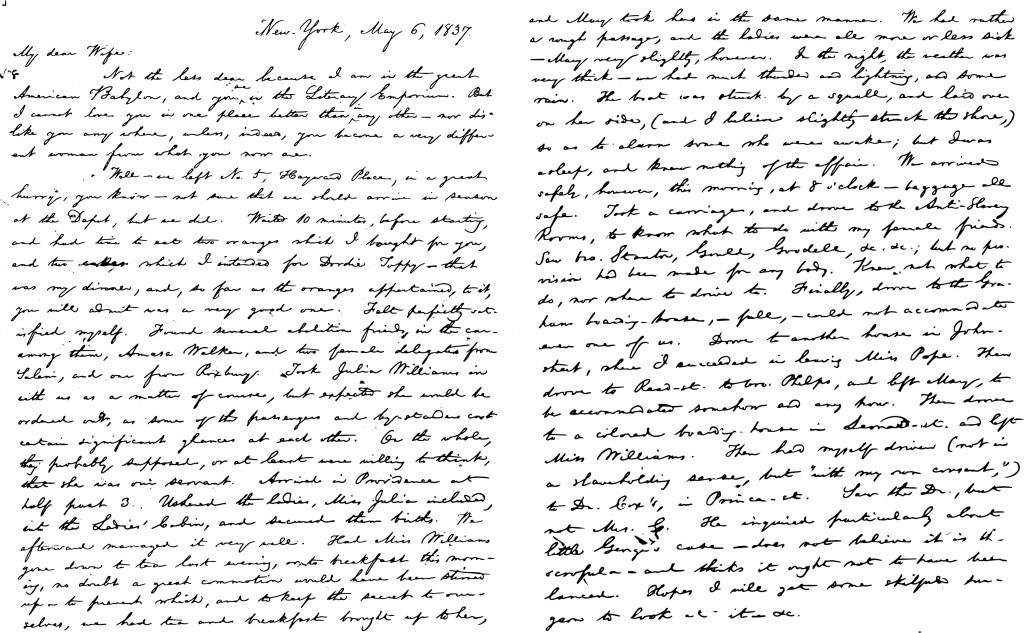 New-York, May 6, 1837.
My dear Wife:
Not the less dear because I am in the great
American Babylon, and you are in the Literary Emporium. But
I cannot love you in one place better than any other — nor dis-
like you any where, unless, indeed, you become a very differ-
ent woman from what you now are.
Well — we left No. 5, Hayward Place, in a great
hurry, you know — not sure that we should arrive in season
at the Depot, but we did. Waited 10 minutes, before starting,
and had time to eat two oranges which I bought for you,
and two cakes which I intended for Dordie Toppy — that
was my dinner, and, so far as the oranges appertained to it,
you will admit was a very good one. Felt perfectly sat-
isfied myself. Found several abolition friends in the cars —
among them, Amasa Walker, and two female delegates from
Salem, and one from Roxbury. Took Julia Williams in
with us as a matter of course, but expected she would be
ordered out, as some of the passengers and by-standers cast
certain significant glances at each other. On the whole,
they probably supposed, or at least were willing to think,
that she was our servant. Arrived in Providence at
half past 3. Ushered the ladies, Miss Julia included,
into the Ladies' Cabin, and secured them births. We
afterward managed it very well. Had Miss Williams
gone down to tea last evening, or to breakfast this morn-
ing, no doubt a great commotion would have been stirred
up — to prevent which, and to keep the secret to our-
selves, we had tea and breakfast brought up to her,
and May took hers in the same manner. We had rather
a rough passage, and the ladies were all more or less sick
— May very slightly, however. In the night, the weather was
very thick — we had much thunder and lightning, and some
rain. The boat was struck by a squall, and laid over
on her side, (and I believe slightly struck the shore,)
so as to alarm some who were awake; but I was
asleep, and knew nothing of the affair. We arrived
safely, however, this morning, at 8 o'clock — baggage all
safe. Took a carriage, and drove to the Anti-Slavery
Rooms, to know what to do with my female friends.
Saw bro. Stanton, Gould, Goodell, &c. &c.; but no pro-
vision had been made for any body. Knew not what to
do, nor where to drive to. Finally, drove to the Gra-
ham boarding-house, — full, — could not accommodate
even one of us. Drove to another house in John-
street, where I succeeded in leaving Miss Pope. Then
drove to Reed-st. to bro. Phelps, and left May, to
be accommodated somehow and any how. Then drove
to a colored boarding-house in Leonard-st. and left
Miss Williams. Then had myself driven (not in
a slaveholding sense, but "with my own consent,")
to Dr. Cox's, in Prince-st. Saw the Dr., but
not Mrs. C. He inquired particularly about
little George's case — does not believe it is the
scrofula — and thinks it ought not to have been
lanced. Hopes I will get some skilful sur-
geon to look at it — &c.